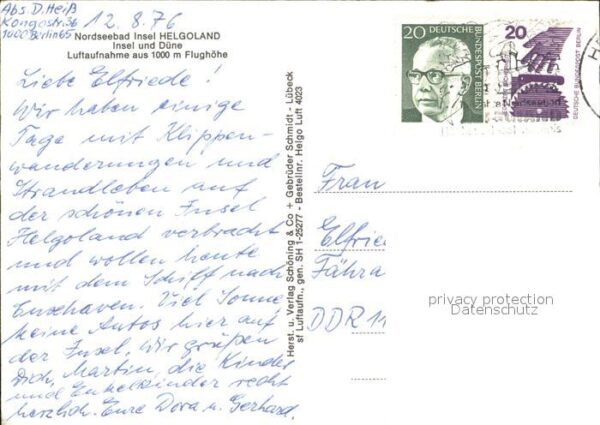 Abs D. Heiß
Kongostr. 36
1000 Berlin 65
12. 8. 76
Nordseebad Insel HELGOLAND
Insel und Düne
Luftaufnahme aus 1000 m Flughöhe
Liebe Elfriede!
Wir haben einige
Tage mit Klippen-
wanderungen und
Strandleben auf
der schönen Insel
Helgoland verbracht
und wollen heute
mit dem Schiff nach
Cuxhaven. Viel Sonne,
keine Autos hier auf
der Insel. Wir grüßen
Dich, Martin, die Kinder
und Enkelkinder recht
herzlich. Eure Dora u. Gerhard.
Herst. u. Verlag Schöning & Co + Gebrüder Schmidt - Lübeck
sf Luftaufn., gen. SH 1-25277 - Bestellnr. Helgo Luft 4023
20 DEUTSCHE BUNDESPOST BERLIN
20 DEUTSCHE BUNDESPOST BERLIN
Frau
Elfrie
Fähra
DDR 11
privacy protection
Datenschutz